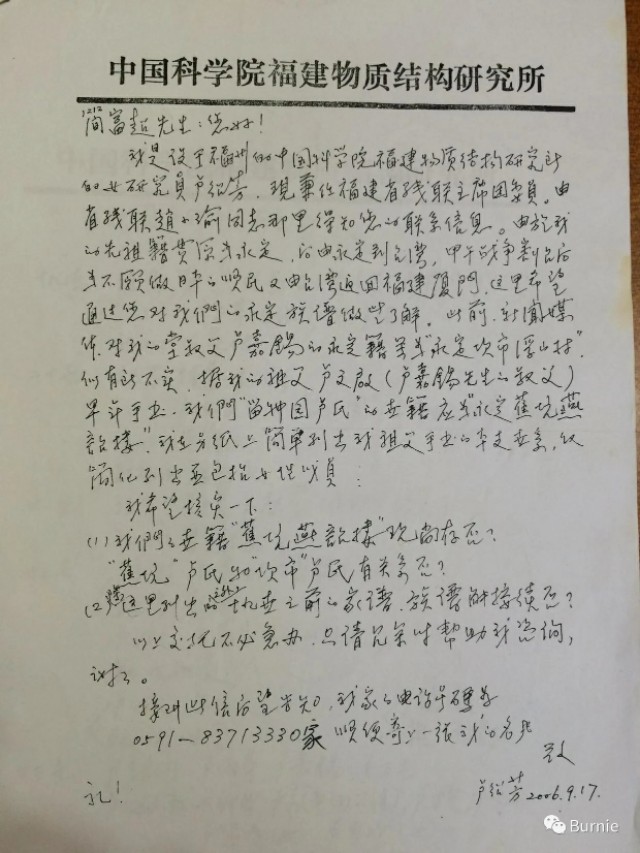 中国科学院福建物质结构研究所
简富超先生：您好！
我是设于福州的中国科学院福建物质结构研究所
的 研究员卢绍芳，现兼任福建省残联主席团委员。由
省残联赵小瑜同志那里得知您的联系信息。由於我
的先祖籍贯原为永定，后由永定到台湾，甲午战争割台后
为不愿做日本的顺民又由台湾返回福建厦门，这里希望
通过您对我們的永定族谱做些了解。此前，新闻媒
体对我的堂叔父卢嘉锡的永定籍写为“永定坎市浮山村”，
似有所不实，据我的祖父卢文启（卢嘉锡先生的叔父）
早年手书，我們“留种园卢氏”的世籍应为“永定蕉坑燕
诒楼”。我在另纸上简单列出我祖父手书的 世系，以
简化列出并包括女性成员：
我希望核实一下：
(1) 我們之世籍“蕉坑燕诒楼”现尚存否？
“蕉坑”卢氏和“坎市”卢氏有关系否？
(2) 这里列出的 世之前的家谱、族谱能接续否？
以上 不必急办，只请 帮助我咨询，
谢了。
接到此信后望告知，我家的电话号码为
0591-83713330家 顺便寄上一张我的名片
致
礼！
卢绍芳 2006.9.17.
Burnie